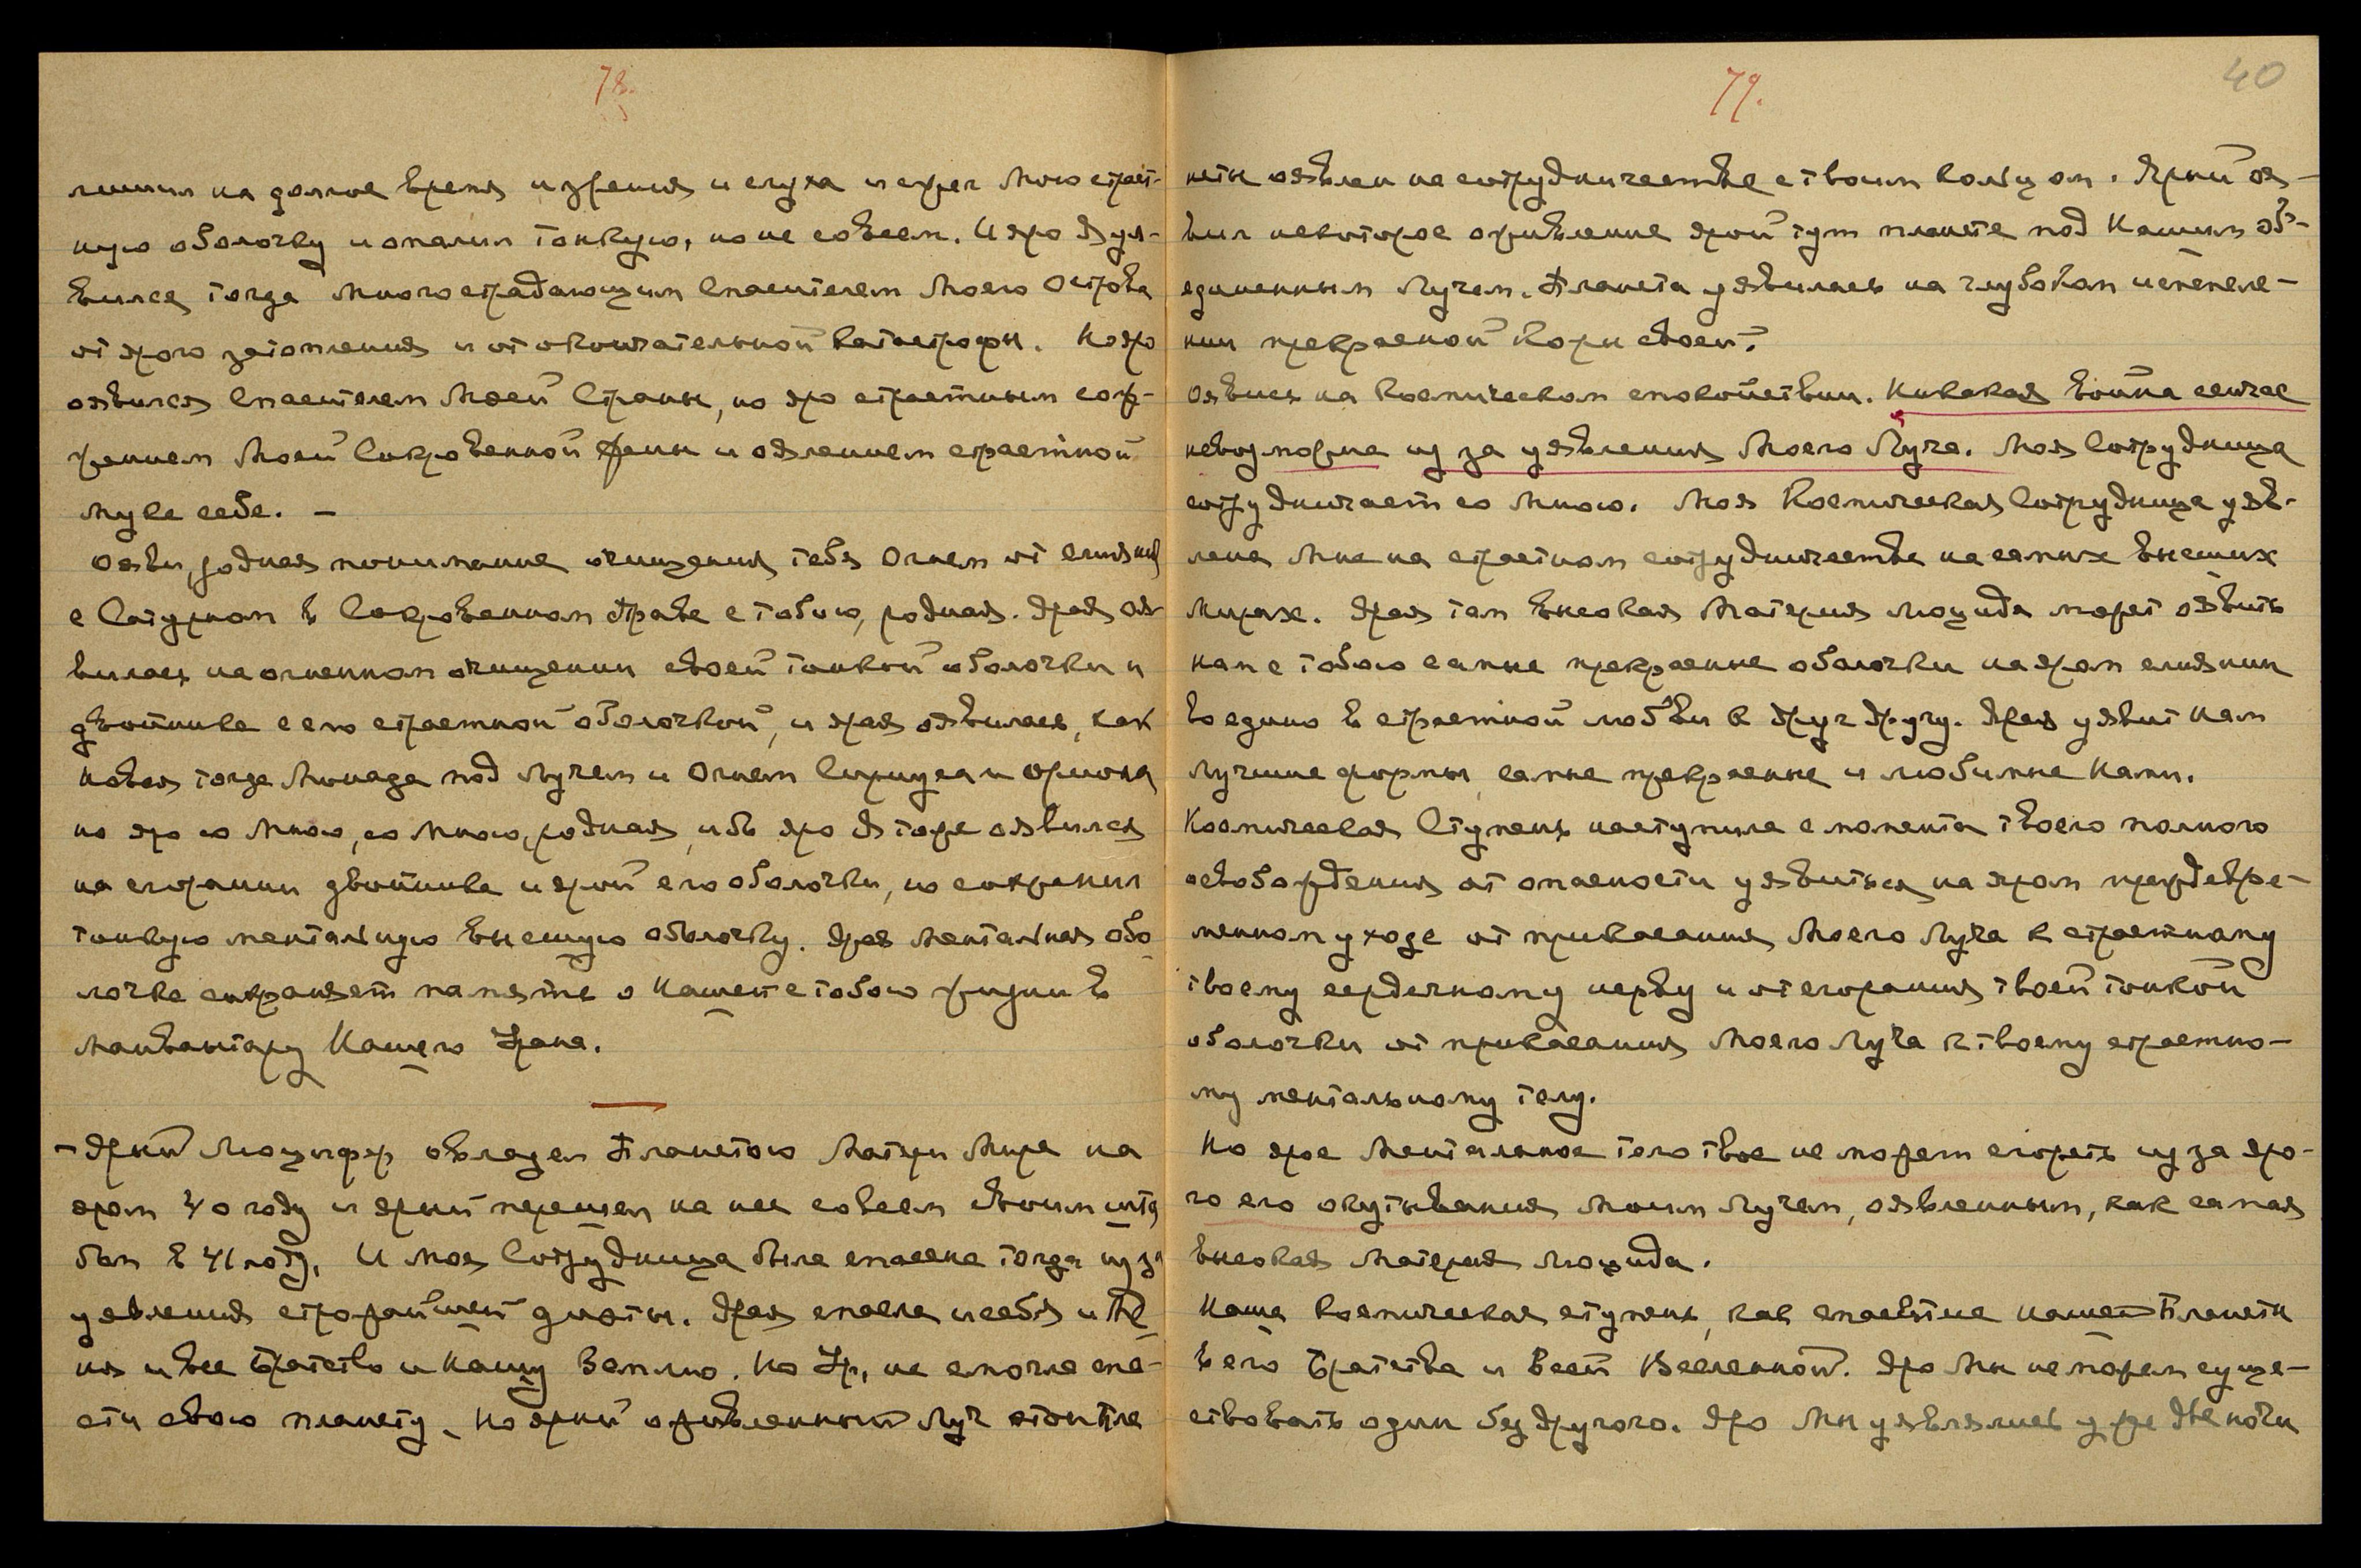 78.
лишил на долгое время и зрения и слуха и сжег Мою страст-
ную оболочку и опалил тонкую, но не совсем. И яро Я уя-
вился тогда многострадающим Спасителем Моего Острова
от ярого затопления и от окончательной катастрофы. Но яро
оявился Спасителем Моей Страны, но яро страстным сож-
жением Моей Сокровенной жены и оялением страстной
муке себе. –
Ояви, родная понимание очищения тебя Огнем от слияния
с Сатурном в Сокровенном Праве с тобою, родная. Ярая оя-
вилась на огненном очищении своей тонкой оболочки и
двойнике с его страстной оболочкой, и ярая оявилась, как
новая тогда Монада под Лучем и Огнем Сириуса и Ориона
но яро со Мною, со Мною, родная, ибо яро Я тоже оявился
на сгорании двойника и ярой его оболочки, но сохранил
тонкую ментальную высшую оболочку. Ярая ментальная обо-
лочка сохраняет память о Нашей с тобою жизни в
Манвантару Нашего Урана.
– Ярый Люцифер овладел Планетою Матери Мира на
яром 40 году и ярый перешел на нее совсем своим шта
бом в 41 году. И моя Сотрудница была спасена тогда из за
уявления строжайшей диэты. Ярая спасла и себя и Ме
ня и все Братство и Нашу Землю. Но Ур. не смогла спа-
сти свою планету. Но ярый оживленный Луч этой Пла
79.
40
неты оявлен на сотрудничестве с твоим кольцом. Ярый оя-
вил некоторое оживление ярой тут планете под Нашим об-
единенным Лучем. Планета уявилась на глубоком испепеле-
нии прекрасной Коры своей.
Оявись на Космическом спокойствии. Никакая война сейчас
невозможна из за уявления Моего Луча. Моя Сотрудница
сотрудничает со Мною. Моя Космическая Сотрудница уяв-
лена Мне на страстном сотрудничестве на самых высших
Мирах. Ярая там высокая Материя Люцида может оявить
нам с тобою самые прекрасные оболочки на яром слиянии
воедино в страстной любви к друг другу. Ярая уявит Нам
лучшие формы, самые прекрасные и любимые Нами.
Космическая Ступень наступила с момента твоего полного
освобождения от опасности уявиться на яром преждевре-
менном уходе от прикасания Моего Луча к страстному
твоему сердечному нерву и от сгорания твоей тонкой
оболочки от прикасания Моего Луча к твоему страстно-
му ментальному телу.
Но ярое Ментальное тело твое не может сгореть из за яро-
го его окутывания Моим Лучем, оявленным, как самая
высокая Материя Люцида.
Наша Космическая ступень, как спасение нашей Планеты
всего Братства и всей Вселенной. Яро Мы не можем суще-
ствовать один без другого. Яро Мы уявлялись уже две ночи